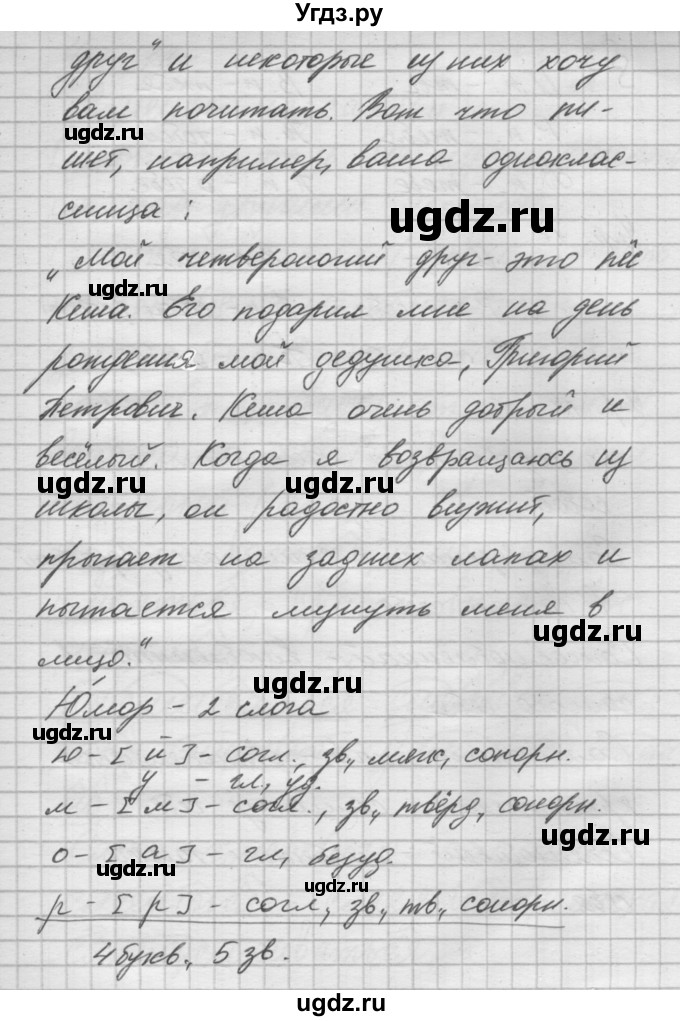 Угдз.ру
друг" и некоторые из них хочу
вам почитать. Вот что пи-
ugdz.ru
шет, например, ваша одноклас-
сница:
ugdz.ru
„Мой четвероногий друг - это пёс
ugdz.ru
Кеша. Его подарил мне на день
рождения мой дедушка, Григорий
Петрович. Кеша очень добрый и
весёлый. Когда я возвращаюсь из
ugdz.ru ugdz.ru
школы, он радостно визжит,
прыгает на задних лапах и
пытается лизнуть меня в
ugdz.ru
лицо."
ugdz.ru
Ю́мор - 2 слога
ugdz.ru
ю - [й] - согл., зв., мягк., сонорн.
у - гл., уд.
м - [м] - согл., зв., твёрд., сонорн.
ugdz.ru
о - [а] - гл., безуд.
ugdz.ru
ugdz.ru
р - [р] - согл., зв., тв., сонорн.
4 букв., 5 зв.
ugdz.ru